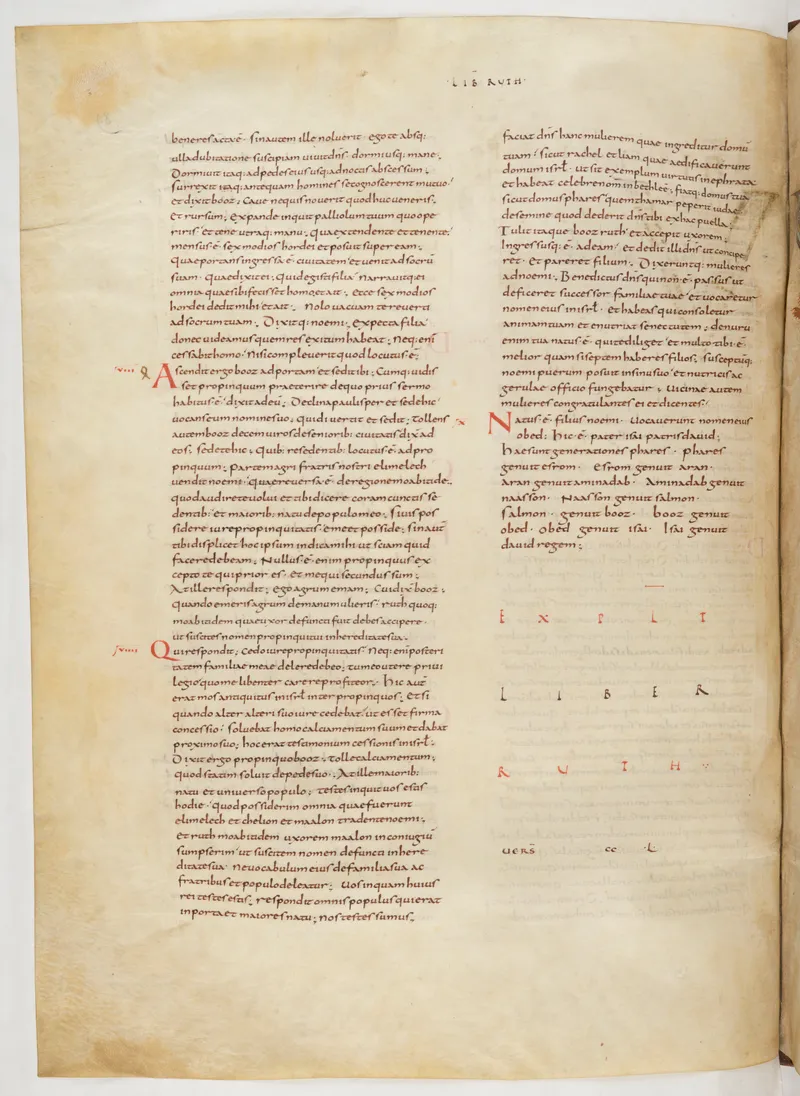 LIB RUTH
bene res acta ē· sin autem ille noluerit· ego te absq:
ulla dubitatione suscipiam uiuit dn̄s· dormi usq: mane·,
Dormiuit itaq: ad pedes eius usq: ad noctis abscessum·,
surrexit itaq: antequam homines se cognoscerent mutuo·
et dixit booz; Caue ne quis nouerit quod huc ueneris·,
Et rursum; expande inquit palliolum tuum quo ope
riris· et tene utraq: manu·, qua extendente et tenente·
mensus ē· sex modios hordei et posuit super eam·,
Quae portans ingressa ē· ciuitatem· et uenit ad socrū
suam· quae dixit ei·, quid egisti filia· narrauitq: ei
omnia quae sibi fecisset homo et ait·, ecce sex modios
hordei dedit mihi et ait·, Nolo uacuam te reuerti
ad socrum tuam·, Dixitq: noemi·, expecta filia·
donec uideamus quem res exitum habeat·, Neq: enī
cessabit homo· nisi compleuerit quod locutus ē·,
Ascendit ergo booz ad portam· et sedit ibi·, Cumq: uidis
set propinquum praeterire de quo prius sermo
habitus ē· dixit ad eū·, Declina paulisper et sede hic·
uocans eum nomine suo·, qui diuertit et sedit·, tollens
autem booz decem uiros de seniorib: ciuitatis dix̄ ad
eos· sedete hic·, quib: residentib: locutus ē· ad pro
pinquum·, partem agri fratris nostri elimelech
uendit noemi· quae reuersa ē· de regione moabitide·,
quod audire te uolui et tibi dicere coram cunctis se
dentib:· et maiorib: natu de populo meo·, si uis pos
sidere iure propinquitatis· eme et posside·, sin aut̄
tibi displicet hoc ipsum indica mihi ut sciam quid
facere debeam·, Nullus ē· enim propinquus ex
cepto te qui prior es· et me qui secundus sum·,
At ille respondit·, ego agrum emam·, Cui dix̄ booz·,
quando emeris agrum de manu mulieris· ruth quoq:
moabitidem quae uxor defuncti fuit debes accipere·
ut suscites nomen propinqui tui in hereditate sua·,
Qui respondit·, cedo iure propinquitatis· Neq: enī posteri
tatem familiae meae delere debeo·, tu meo utere priui
legio quo me libenter carere profiteor·, hic aut̄
erat mos antiquitus in isr̄l inter propinquos·, et si
quando alter alteri suo iure cedebat· ut esset firma
concessio· soluebat homo calciamentum suum et dabat
proximo suo·, hoc erat testimonium cessionis in isr̄l·,
Dixit ergo propinquo booz·, tolle calciamentum·,
quod statim soluit de pede suo·, At ille maiorib:
natu et uniuerso populo·, testes inquit uos estis
hodie· quod possiderim omnia quae fuerunt
elimelech et chelion et maalon tradente noemi·,
et ruth moabitidem uxorem maalon in coniugiū
sumpserim· ut suscitem nomen defuncti in here
ditate sua· ne uocabulum eius de familia sua ac
fratribus et populo deleatur·, Uos inquam huius
rei testes estis·, respondit omnis populus qui erat
in porta et maiores natu·, nos testes sumus·,
faciat dn̄s hanc mulierem quae ingreditur domū
tuam· sicut rachel et liam quae aedificauerunt
domum isr̄l· ut sit exemplum uirtutis in ephrata
et habeat celebre nomen in bethleē·, fiatq: domus tua
sicut domus phares quem thamar peperit iudae
de semine quod dederit dn̄s tibi ex hac puella·,
Tulit itaque booz ruth· et accepit uxorem·,
Ingressusq: ē· ad eam· et dedit illi dn̄s ut concipe
ret· et pareret filium·, Dixeruntq: mulieres
ad noemi·, Benedictus dn̄s qui non ē· passus ut
deficeret successor familiae tuae· et uocaretur
nomen eius in isr̄l· et habeas qui consoletur
animam tuam et enutriat senectutem·, de nuru
enim tua natus ē· quite diliget· et multo tibi ē·
melior quam si septem haberes filios·, susceptūq:
noemi puerum posuit in sinu suo· et nutricis ac
gerulae officio fungebatur·, Uicinae autem
mulieres congratulantes ei et dicentes·
Natus ē· filius noemi· Uocauerunt nomen eius
obed· hic ē· pater isai patris dauid·,
hae sunt generationes phares· phares
genuit esrom· esrom genuit aran·
Aran genuit aminadab· Aminadab genuit
naasson· Naasson genuit salmon·
salmon· genuit booz· booz genuit
obed· obed genuit isai· Isai genuit
dauid regem·,
E X P L I T
L I B E R
R U T H
UERS̄ CC L